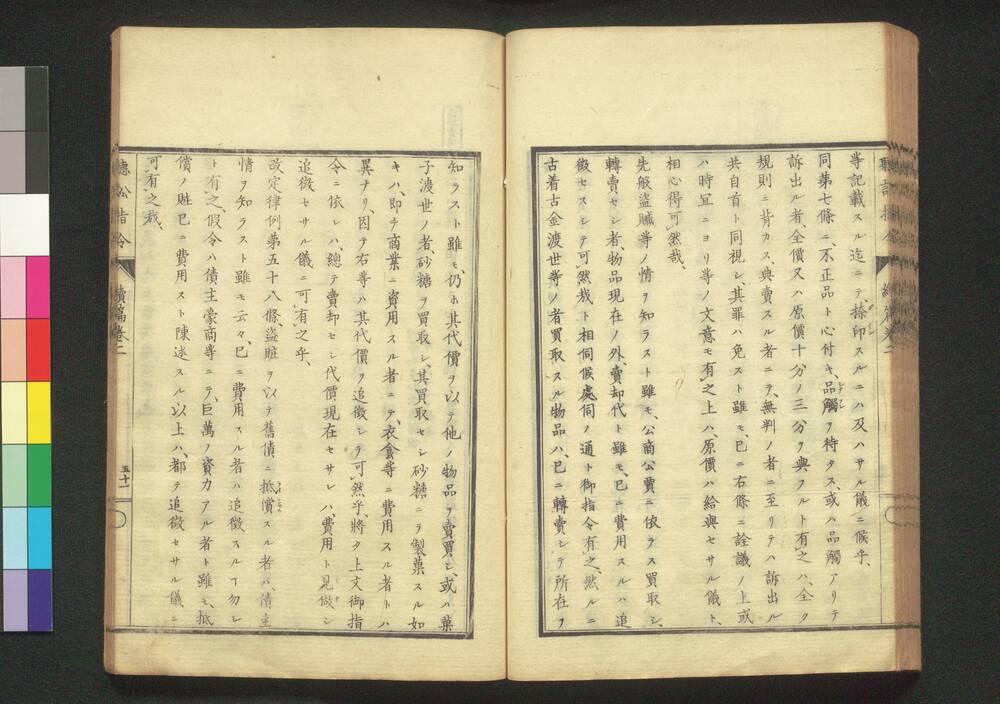 等記載スル迄ニテ、捺印スルニハ及ハサル儀ニ候乎、
同第七條ニ不正品ト心付キ、品觸ヲ待タス、或ハ品觸アリテ
訴出ル者、全價又ハ原價十分ノ三分ヲ與フルト有之ハ、全ク
規則ニ背カス、典賣スル者ニテ、無判ノ者ニ至リテハ訴出ル
共自首ト同視シ、其罪ハ免スト雖モ、已ニ右條ニ詮議ノ上或
ハ時冝ニヨリ等ノ文意モ有之上ハ、原價ハ給與セサル儀ト、
相心得可然哉、
先般盜贓等ノ情ヲ知ラスト雖モ、公商公賈ニ依ラス買取シ、
轉賣セシ者、物品現在ノ外、賣却代ト雖モ、已ニ費用スルハ追
徴セスシテ可然哉ト相伺候處伺ノ通ト御指令有之、然ルニ
古着古金渡世等ノ者買取スル物品ハ、已ニ轉賣シテ所在ヲ
知ラスト雖モ、仍ホ其代價ヲ以テ他ノ物品ヲ賣買シ、或ハ菓
子渡世ノ者、砂糖ヲ買取シ、其買取セシ砂糖ニテ製菓スル如
キハ、即チ商業ニ資用スル者ニテ、衣食等ニ費用スル者トハ
異ナリ、因テ右等ハ其代價ヲ追徴シテ可然乎、將タ上文御指
令ニ依レハ、總テ賣却セシ代價現在セサレハ、費用ト見做シ
追徴セサル儀ニ可有之乎、
改定律例第五十八條、盜贓ヲ以テ舊債ニ抵償スル者ハ、債主
情ヲ知ラスト雖モ云々、已ニ費用スル者ハ追徴スルヿ勿レ
ト有之、假令ハ債主豪商等ニテ、巨萬ノ資力アル者ト雖モ、抵
償ノ贓已ニ費用スト陳述スル以上ハ、都テ追徴セサル儀ニ
可有之哉、
聽訟指令
續篇卷二
五十一